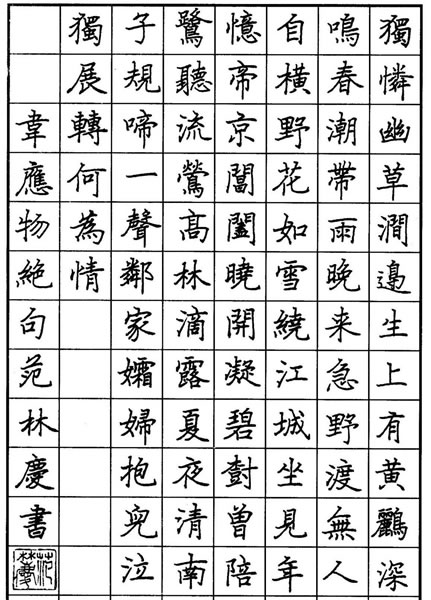 獨憐幽草澗邊生上有黃鸝深
鳴春潮帶雨晚来急野渡無人
自橫野花如雪繞江城坐見年
憶帝京閶闔曉開凝碧樹曾陪
鷺聽流鶯髙林滴露夏夜清南
子規啼一聲鄰家孀婦抱兒泣
獨展轉何為情
韋應物絕句范林慶書
范林慶